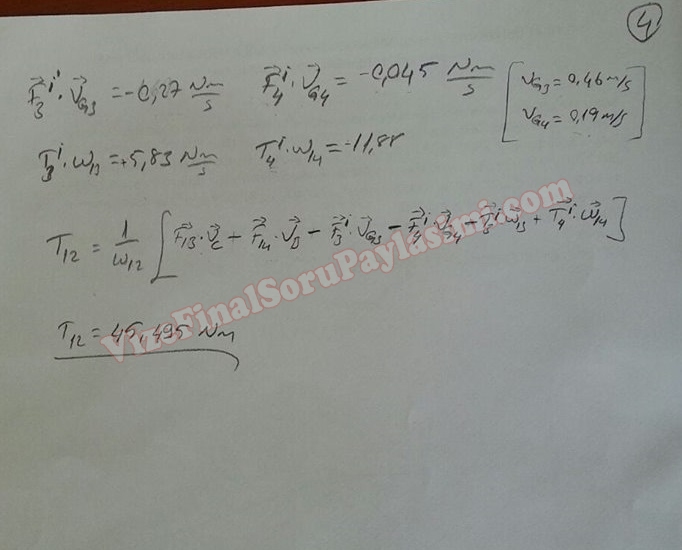 4
F⃗₃ⁱ · V⃗G3 = -0,27 Nm/s F⃗₄ⁱ · V⃗G4 = -0,045 Nm/s [VG3 = 0,46 m/s
VG4 = 0,19 m/s]
T₃ⁱ · ω13 = +5,83 Nm/s T₄ⁱ · ω14 = -11,88
T12 = 1/ω12 [F⃗13 · V⃗C + F⃗14 · V⃗D - F⃗₃ⁱ · V⃗G3 - F⃗₄ⁱ · V⃗G4 - T⃗₃ⁱ ω⃗13 + T⃗₄ⁱ · ω⃗14]
T12 = 45,495 Nm
VizeFinalSoruPaylasimi.com